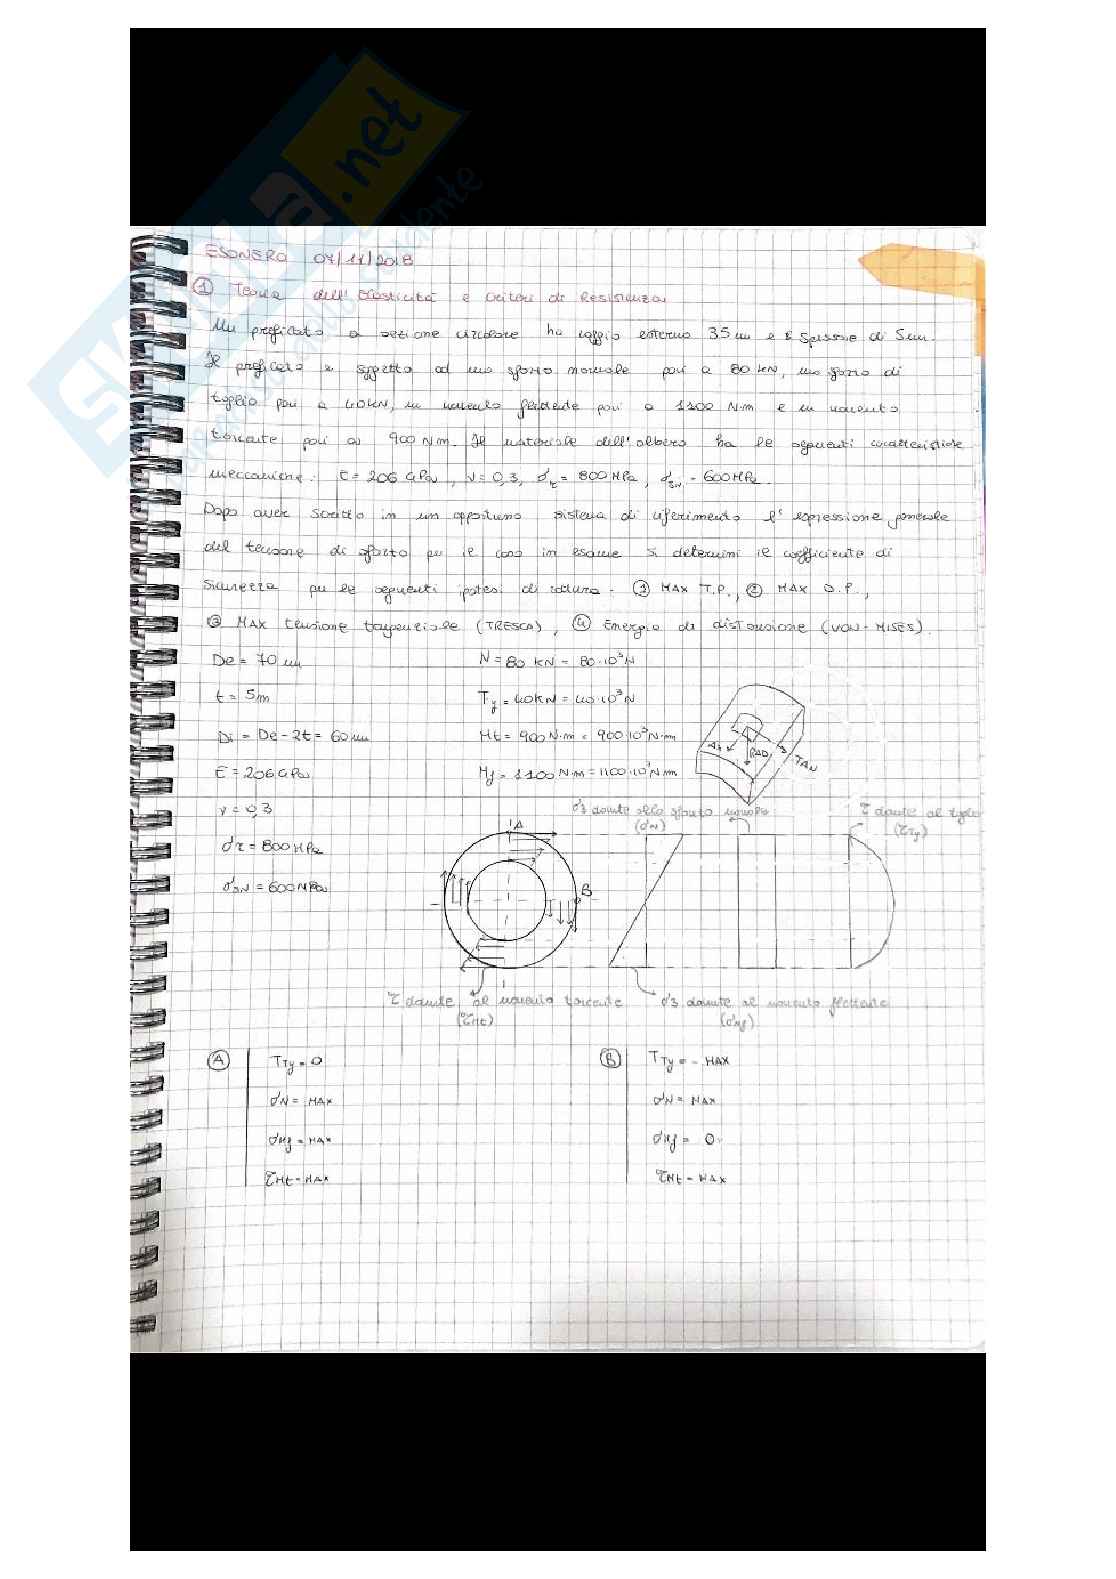 SKUOLA.net
ESONERO 07/11/2018
① Teoria dell'Elasticità e Criteri di Resistenza
Un profilato a sezione circolare ha raggio esterno 35 mm e spessore di 5mm.
Il profilato è soggetto ad uno sforzo normale pari a 80 kN, uno sforzo di
taglio pari a 40kN, un momento flettente pari a 1100 N·m e un momento
torcente pari a 900 N·m. Il materiale dell'albero ha le seguenti caratteristiche
meccaniche: E = 206 GPa, ν = 0,3, σr = 800 MPa, σsn = 600 MPa.
Dopo aver scritto in un opportuno sistema di riferimento l'espressione generale
del tensore di sforzo per il caso in esame si determini il coefficiente di
Sicurezza per le seguenti ipotesi di rottura. ① MAX T.P., ② MAX D.P.,
③ MAX tensione tangenziale (TRESCA), ④ Energia di distorsione (VON-MISES).
De = 70 mm N = 80 kN = 80·10³N
t = 5m Ty = 40kN = 40·10³N
Di = De - 2t = 60 mm Mt = 900 N·m = 900·10³N·mm
E = 206 GPa Mf = 1100 N·m = 1100·10³N·mm
AX RAD TAN
ν = 0,3
σz dovute allo sforzo normale (σN)
τ dovute al taglio (τTy)
σr = 800 MPa
σsN = 600 MPa
A
B
τ dovute al momento torcente (τMt)
σz dovute al momento flettente (σMf)
Ⓐ TTy = 0 Ⓑ TTy = - MAX
σN = MAX σN = MAX
σMf = MAX σMf = 0
τMt = MAX τMt = MAX